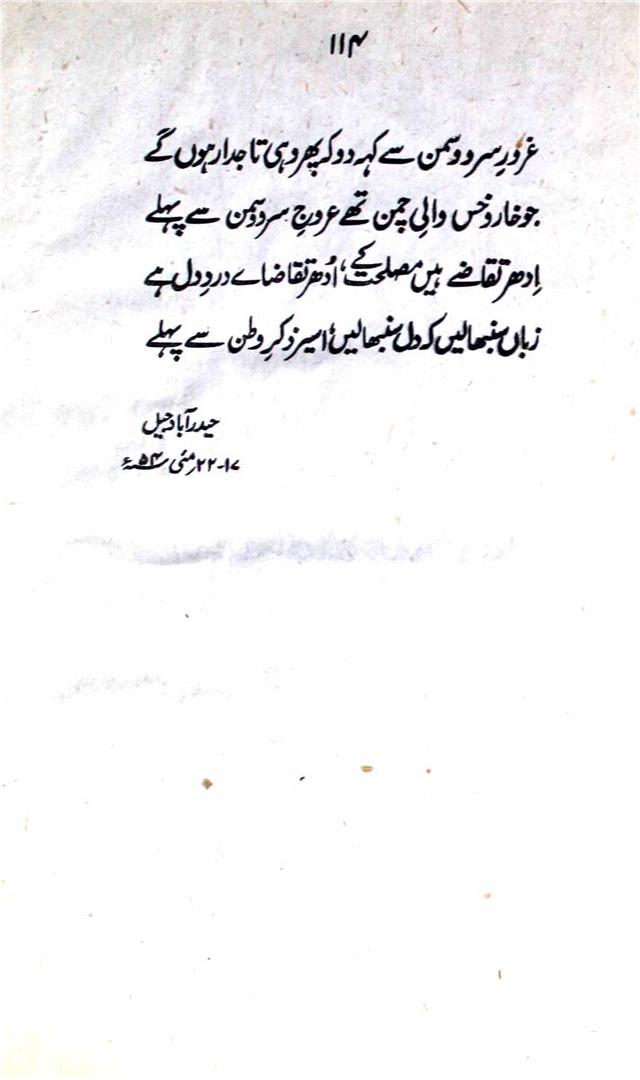 ۱۱۴
غرورِ سرو و سمن سے کہہ دو کہ پھر وہی تاجدار ہوں گے
جو خار و خس والیِ چمن تھے عروجِ سرو و سمن سے پہلے
اِدھر تقاضے ہیں مصلحت کے، اُدھر تقاضاے دردِ دل ہے
زباں سنبھالیں کہ دل سنبھالیں، اسیر ذکرِ وطن سے پہلے
حیدرآباد جیل
۱۷-۲۲ مئی ۵۴ء